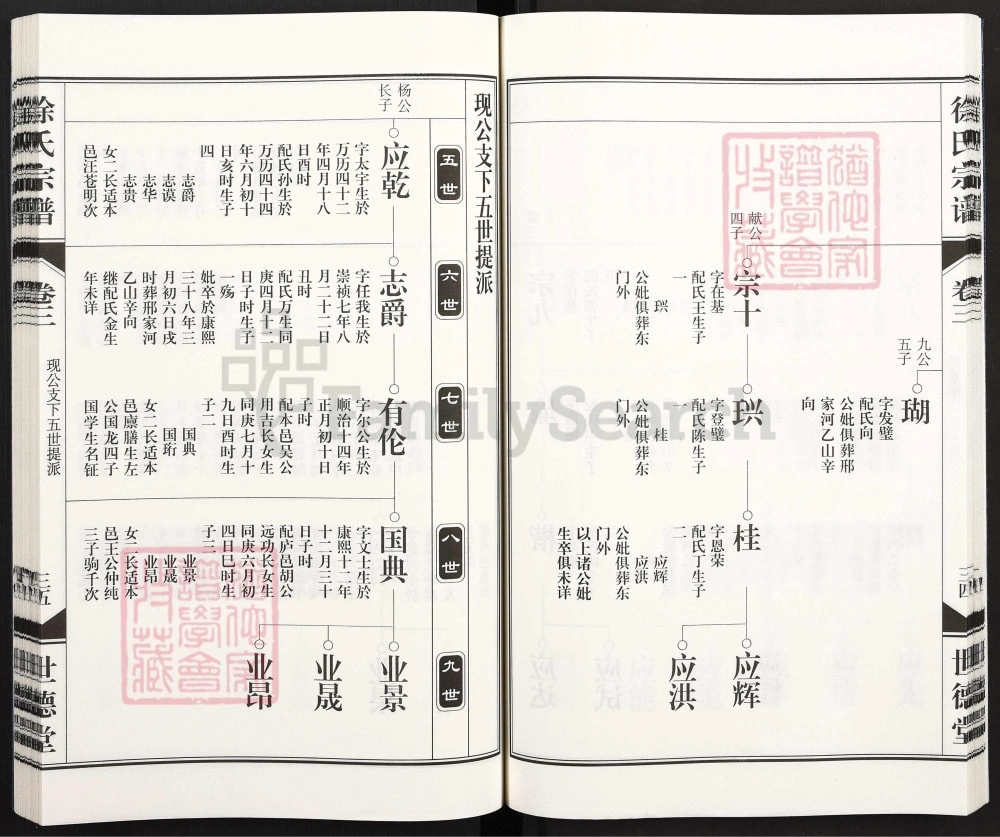 徐氏宗谱
卷三
三四
世德堂
九公
五子
瑚
字发璧
配氏向
公妣俱葬邢
家河乙山辛
向
献公
四子
宗十
字在基
配氏王生子
一
珙
公妣俱葬东
门外
珙
字登璧
配氏陈生子
一
桂
公妣俱葬东
门外
桂
字恩荣
配氏丁生子
二
应辉
应洪
公妣俱葬东
门外
以上诸公妣
生卒俱未详
应辉
应洪
现公支下五世提派
五世
六世
七世
八世
九世
杨公
长子
应乾
字太宇生於
万历四十二
年四月十八
日酉时
配氏孙生於
万历四十四
年六月初十
日亥时生子
四
志爵
志谟
志华
志贵
女二长适本
邑汪苍明次
志爵
字任我生於
崇祯七年八
月二十二日
丑时
配氏万生同
庚四月十二
日子时生子
一殇
妣卒於康熙
三十八年三
月初六日戌
时葬邢家河
乙山辛向
继配氏金生
年未详
有伦
字尔公生於
顺治十四年
正月初十日
子时
配本邑吴公
用志长女生
同庚七月十
九日酉时生
子二
国典
国珩
女二长适本
邑廪膳生左
公国龙四子
国学生名钲
国典
字文士生於
康熙十二年
十二月三十
日子时
配庐邑胡公
远功长女生
同庚六月初
四日巳时生
子三
业景
业晟
业昂
女二长适本
邑王公仲纯
三子驹千次
业景
业晟
业昂
徐氏宗谱
卷三
现公支下五世提派
三五
世德堂
FamilySearch